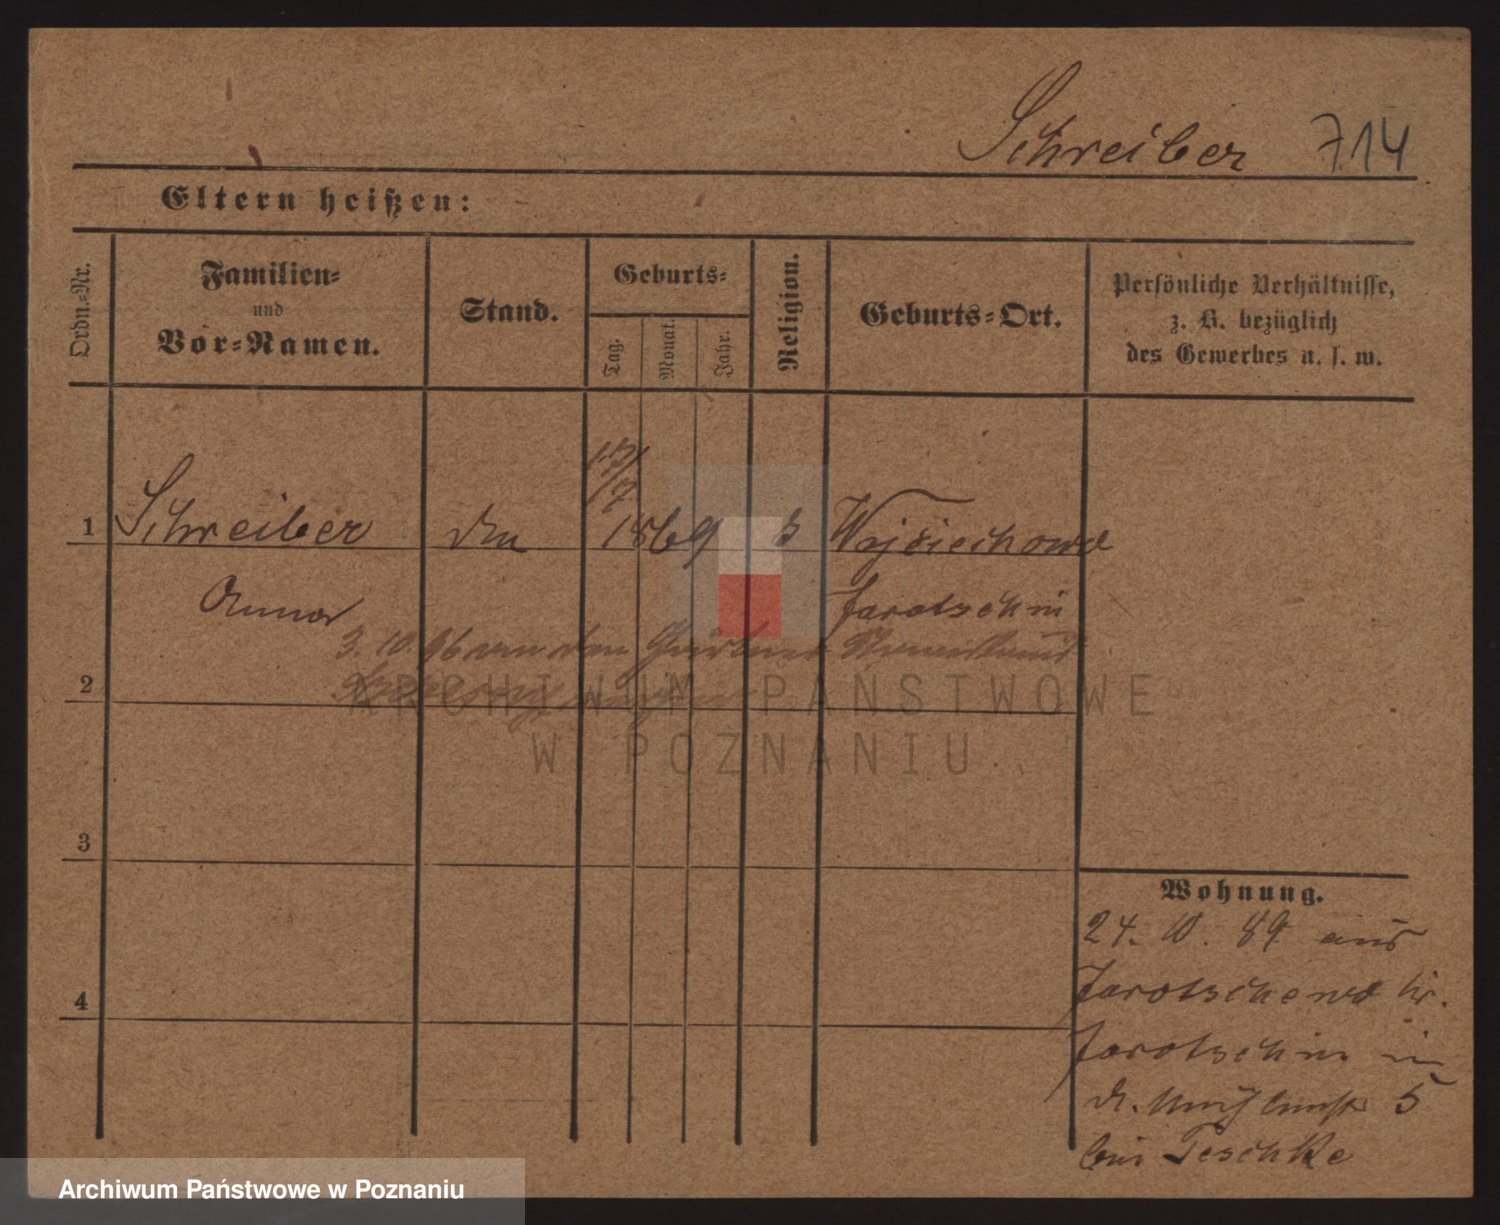 Schreiber 714
Eltern heißen:
Ordn.-Nr.
Familien-
und
Vor-Namen.
Stand.
Geburts-
Tag.
Monat.
Jahr.
Religion.
Geburts-Ort.
Persönliche Verhältnisse,
z. B. bezüglich
des Gewerbes u. s. w.
17/
7
1 Schreiber 1869 Wojciechowo
Anna Jarotschin
3. 10. 96 an den
2
ARCHIWUM PAŃSTWOWE
W POZNANIU
3
Wohnung.
24. 10. 89 aus
4
Jarotschin in
5
bei Peschke
Archiwum Państwowe w Poznaniu